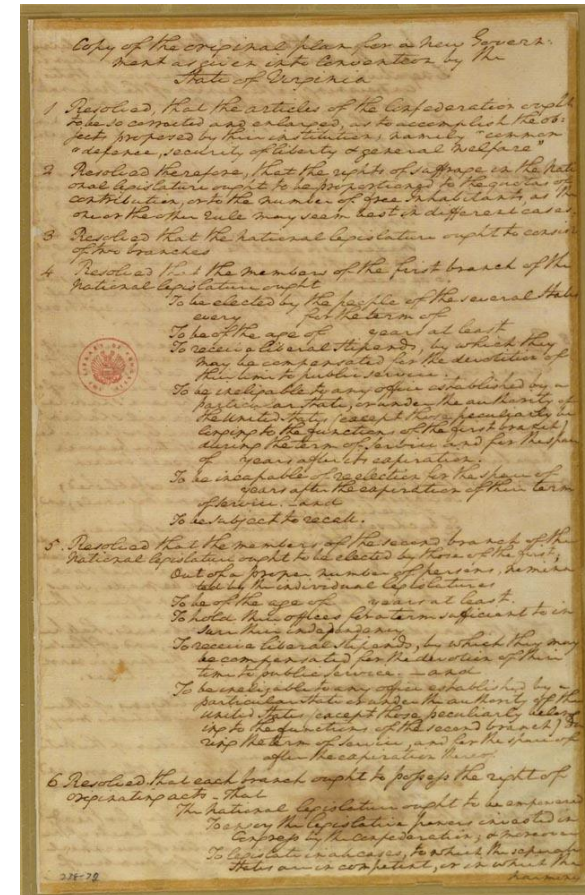 Copy of the original plan for a new Govern-
ment as given into Convention by the
State of Virginia
1 Resolved, that the articles of the Confederation ought
to be so corrected and enlarged, as to accomplish the ob-
jects proposed by their institution; namely "common
"defence, security of liberty & general welfare"
2 Resolved therefore, that the rights of suffrage in the Nati
onal legislature ought to be proportioned to the quotas of
contribution, or to the number of free inhabitants, as the
one or the other rule may seem best in different cases
3 Resolved that the national legislature ought to consist
of two branches
4 Resolved that the members of the first branch of the
National legislature ought
To be elected by the people of the several States
every for the term of
To be of the age of years at least
To receive liberal stipends, by which they
may be compensated for the devotion of
their time to public service
To be ineligable to any office established by a
particular State, or under the authority of
the United States (except those peculiarly be
longing to the functions of the first branch)
during the term of service and for the space
of years after its expiration;
To be incapable of reelection for the space of
years after the expiration of their term
of service - and
To be subject to recall.
5. Resolved that the members of the second branch of the
National legislature ought to be elected by those of the first;
Out of a proper number of persons, nomina
ted by the individual legislatures
To be of the age of years at least
To hold their offices for a term sufficient to in
sure their independency
To receive liberal stipends, by which they may
be compensated for the devotion of their
time to public service - and
To be ineligable to any office established by a
particular State or under the authority of the
United States (except those peculiarly belong
ing to the functions of the second branch) du
ring the term of service, and for the space of
after the expiration thereof
6 Resolved. that each branch ought to possess the right of
originating acts - that
The national legislature ought to be empowered
To enjoy the legislative powers invested in
Congress by the Confederation; & moreover
To legislate in all cases, to which the separate
States are incompetent, or in which the
harmony